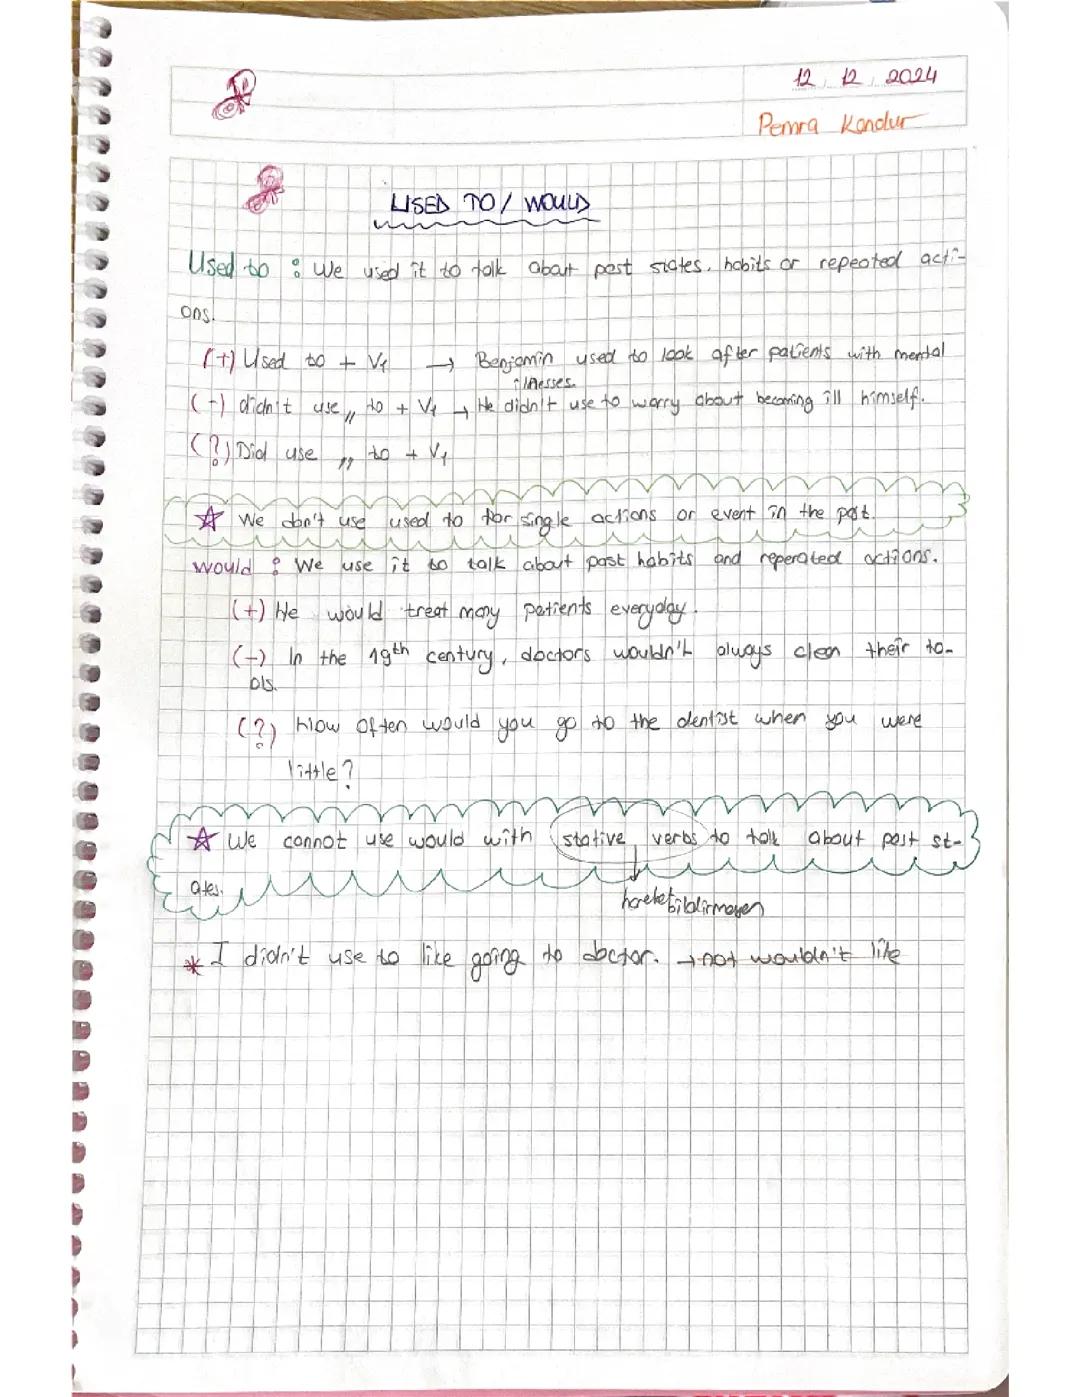 12.12.2024
Pemra Kandur
USED TO / WOULD
Used to : We used it to talk about past states, habits or repeated acti-
ons.
(+) Used to + V1 → Benjamin used to look after patients with mental
illnesses.
(-) didn't use,, to + V1 → He didn't use to worry about becoming ill himself.
(?) Did use ,, to + V1
☆ We don't use used to for single actions or event in the past.
Would : We use it to talk about past habits and reperated actions.
(+) He would treat many patients everyday.
(-) In the 19th century, doctors wouldn't always clean their to-
ols.
(?) How often would you go to the dentist when you were
little?
☆ We cannot use would with stative verbs to talk about past st-
ates.
hareket bildirmeyen
* I didn't use to like going to doctor. → not wouldn't like